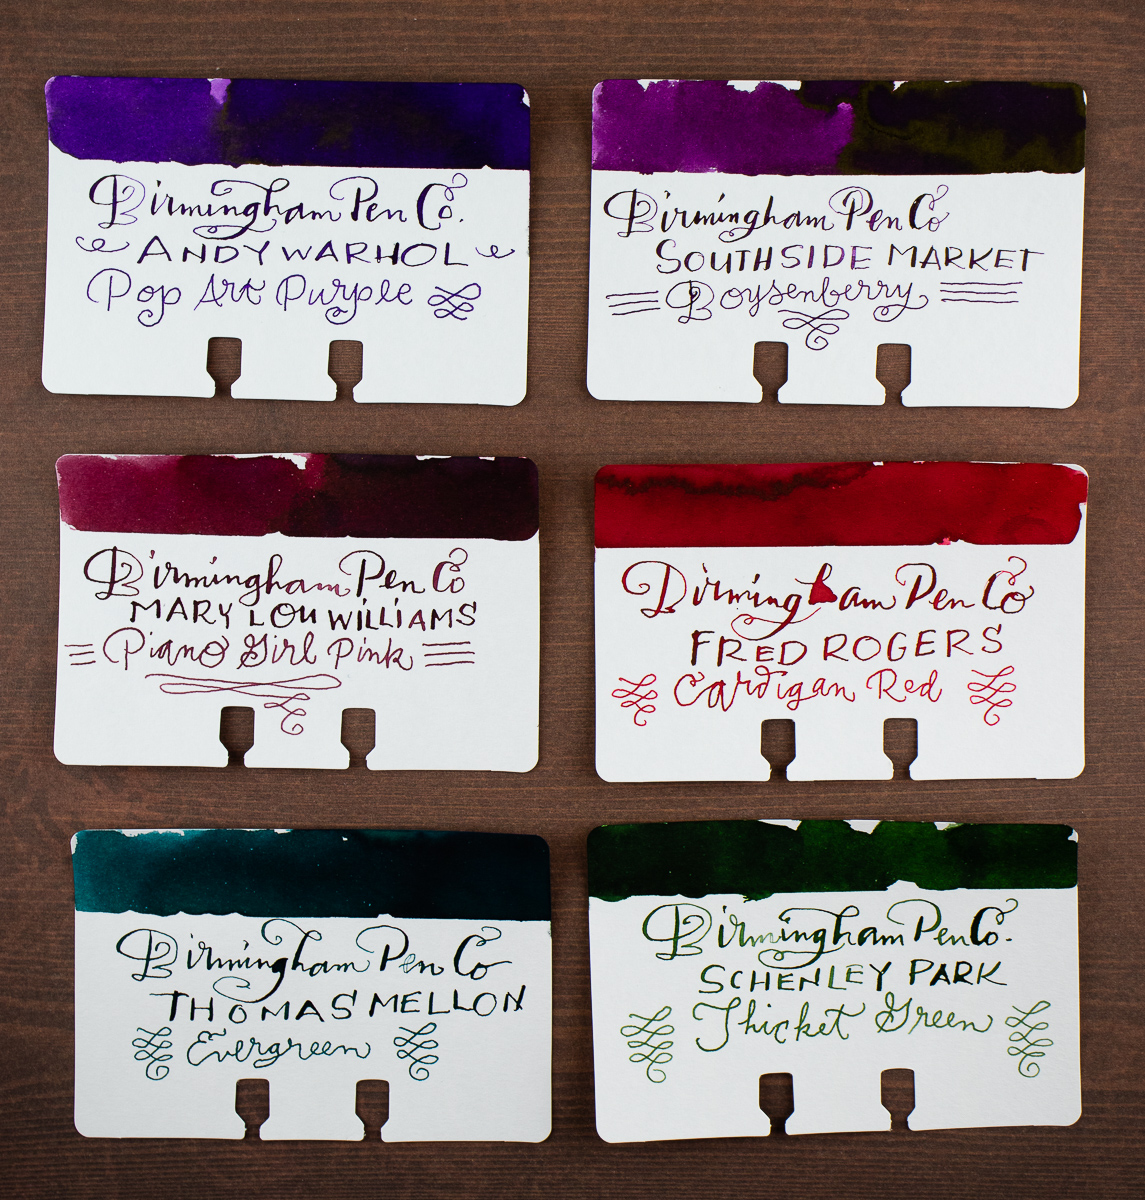 Birmingham Pen Co.
ANDY WARHOL
Pop Art Purple
Birmingham Pen Co
SOUTHSIDE MARKET
Boysenberry
Birmingham Pen Co
MARY LOU WILLIAMS
Piano Girl Pink
Birmingham Pen Co
FRED ROGERS
Cardigan Red
Birmingham Pen Co
THOMAS MELLON
Evergreen
Birmingham Pen Co.
SCHENLEY PARK
Thicket Green